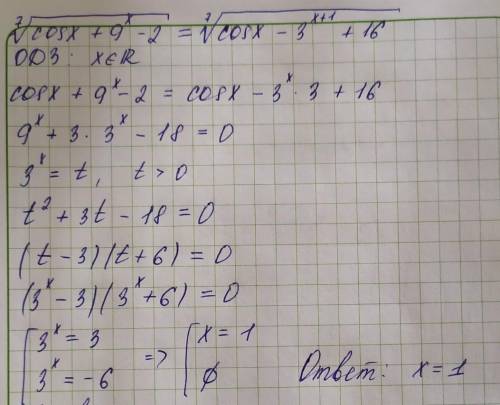 ⁷√(cosx + 9ˣ - 2) = ⁷√(cosx - 3ˣ⁺¹ + 16)
ОДЗ: x∈ℝ
cosx + 9ˣ - 2 = cosx - 3ˣ · 3 + 16
9ˣ + 3 · 3ˣ - 18 = 0
3ˣ = t, t > 0
t² + 3t - 18 = 0
(t - 3)(t + 6) = 0
(3ˣ - 3)(3ˣ + 6) = 0
[ 3ˣ = 3 => [ x = 1
[ 3ˣ = -6 [ ∅ Ответ: x = 1